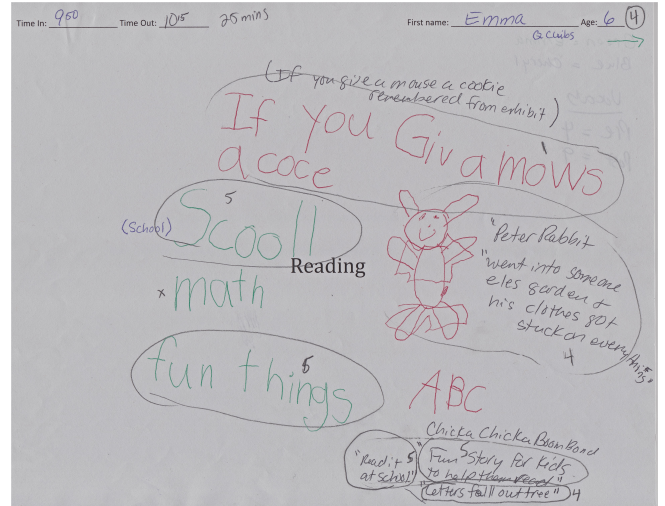 Time In: 9:50 Time Out: 10:15 25 mins First name: Emma Age: 6 4
(If you give a mouse a cookie
remembered from exhibit)
If you Giv a mows 1
a coce
5
(School) Scooll
Reading
x math
fun things 5
"Peter Rabbit
"went into someone
eles garden &
his clothes got
stuck on everything"
4
ABC
Chicka Chicka Boom Bond
"Read it 5
at school"
Fun 5 Story for kids
to help them read"
"letters fall out tree" 4